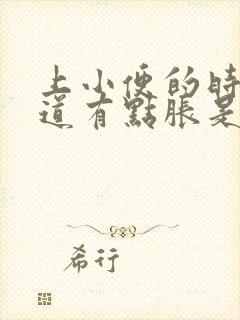 上小便的時
道有點脹是
希行